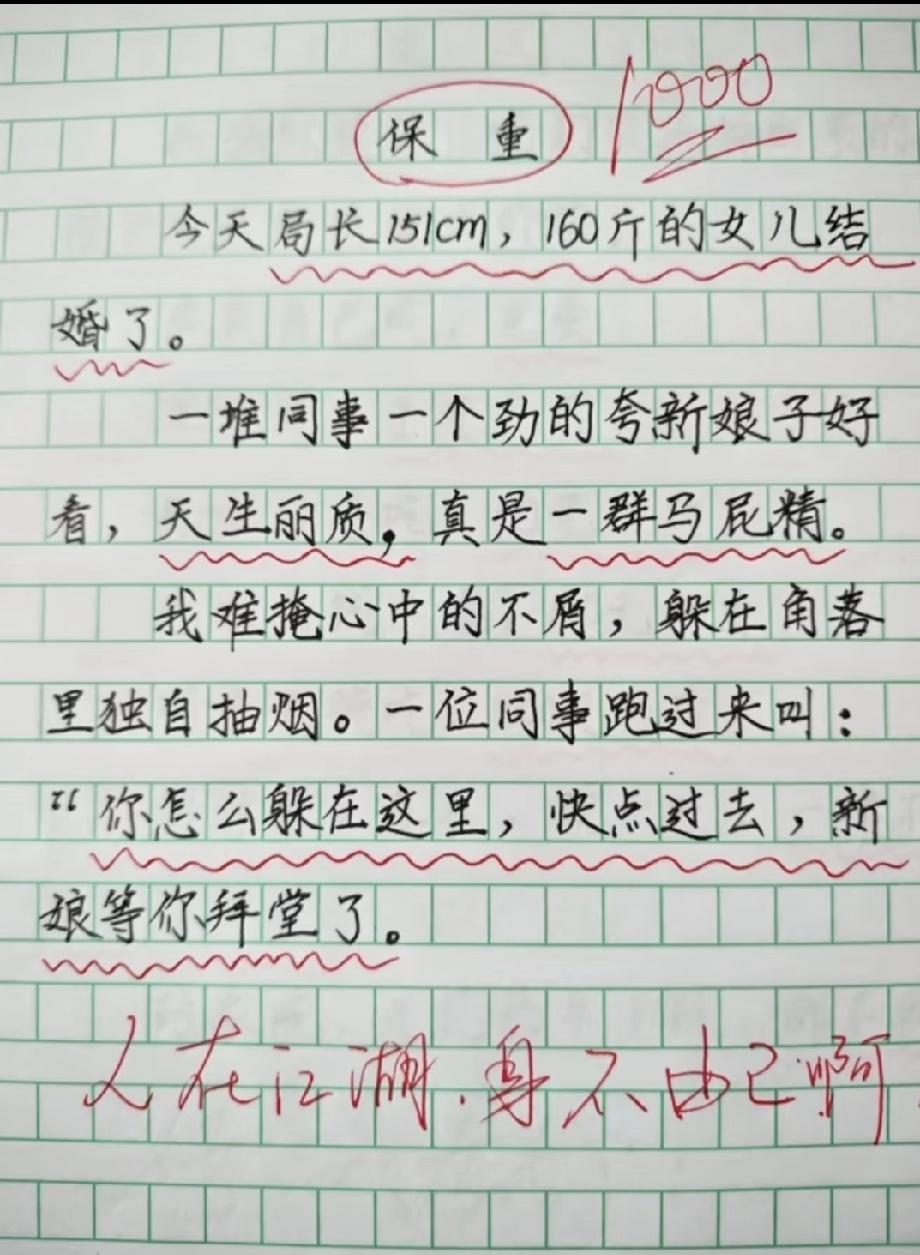 保重 1000
今天局长151cm，160斤的女儿结
婚了。
一堆同事一个劲的夸新娘子好
看，天生丽质，真是一群马屁精。
我难掩心中的不屑，躲在角落
里独自抽烟。一位同事跑过来叫：
“你怎么躲在这里，快点过去，新
娘等你拜堂了。
人在江湖.身不由己啊.